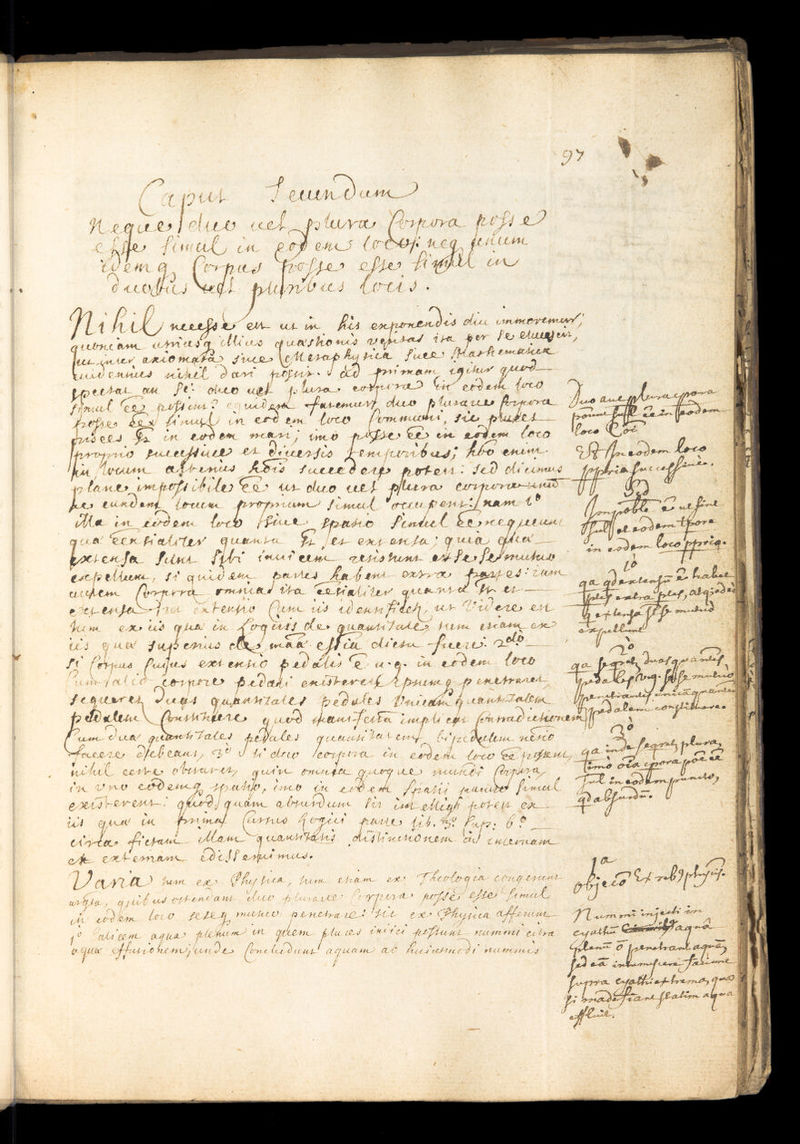 97
Caput Secundum
Neque duo vel plura Corpora posse
esse simul in eodem loco; neq unum
idemq Corpus posse esse simul in
duobus vel pluribus locis.
Nihil necesse est ut in his exponendis diu immoremur,
quoniam utriusq illius quæstionis veritas ita per se elucescit,
ut inter axiomata sive Metaphysica sive Mathematica
evidentius nihil dari possit. ad primam igitur quod
spectat an sci: duo vel plura corpora in eodem loco
simul ee possint? equidem fatemur duo pluraue Corpora
posse ee simul in eodem loco Communi, sic plures
pisces st in eodem mari; imo posse ee in eodem loco
proprio successive et diversis temporibus; hoc enim
in locum alterius succedere potest: sed dicimus
plane impossibile ee ut duo vel plura corpora
eundem locum proprium simul occupent: nam 1º
illa in eodem loco sive spatio simul ee nequeunt
qua eentialiter quanta st, et extensa; quia qua
extensa sunt sibi invicem resistunt et se se mutuo
expellunt, si quidem partes habent extra partes: tum
autem Corpora omnia ita eentialiter quanta st et
extensa ut extensio cum iis identificetur, ut videre est
tum ex iis qua in Logicis de quantitate tum etiam ex
iis qua superius de maa essia dicta fuere. 2do
si Corpus cujus extensio pedalis e v.g. in eodem loco
cum alio corpore pedali existeret ipsumq penetraret
sequeretr duas quantitates pedales unicam quantitatem
pedalem Constituere quod manifesta implicat contradictionem
Cum dua quantitates pedales quantitatem bipedalem nro
facere debeant, 3º si duo corpora in eodem loco ee possent,
nihil certe obstaret, quin omnia quoque mundi Corpora,
in uno eodemq spatio, imo in eodem spatii puncto simul
existerent: quod quam absurdum sit intelligi potest ex
iis qua in prima Cursus Logici parte lib. 3º Cap. 6º
circa fictam illam quantitatis distinctionem in internam
et externam edisseruimus.
Varia tum ex Physica, tum etiam ex Theologia congerunt
quibus ostendant duo pluraue Corpora posse esse simul
in eodem loco seseq mutuo penetrare: sic ex Physica afferunt
1º calicem aqua plenum in quem plures iniici possunt nummi citra
aqua effusionem; unde Concludunt aquam ab huiusmodi nummis
Duo aut plura cpora
ponunt simul ee in eodem
loco coi
Et in eodem loco
pprio successive.
Impoble e ut sint
simul et eodem tpore
in eodem loco pprio.
1º
qa qd extensu e habet
ptes extra ptes, at
extensa se se mutuo
expellunt
2º
qa seqret duas quantites
pedales v.g. se se mutuo
penetrantes unica quantite
pedalem constituere.
3º
qa inde seqret, plura,
imo oia cpora posse ee
sul in eodem puncto,
qd absurdu.
1a
objeco Ex rebs physis.
Nummi injecti in
cyathu aqua
plenu o penetrant aqua
sed ea intumescere faciunt
supra cyathi extrema, qua
si madefiant statim aqua
effluit.